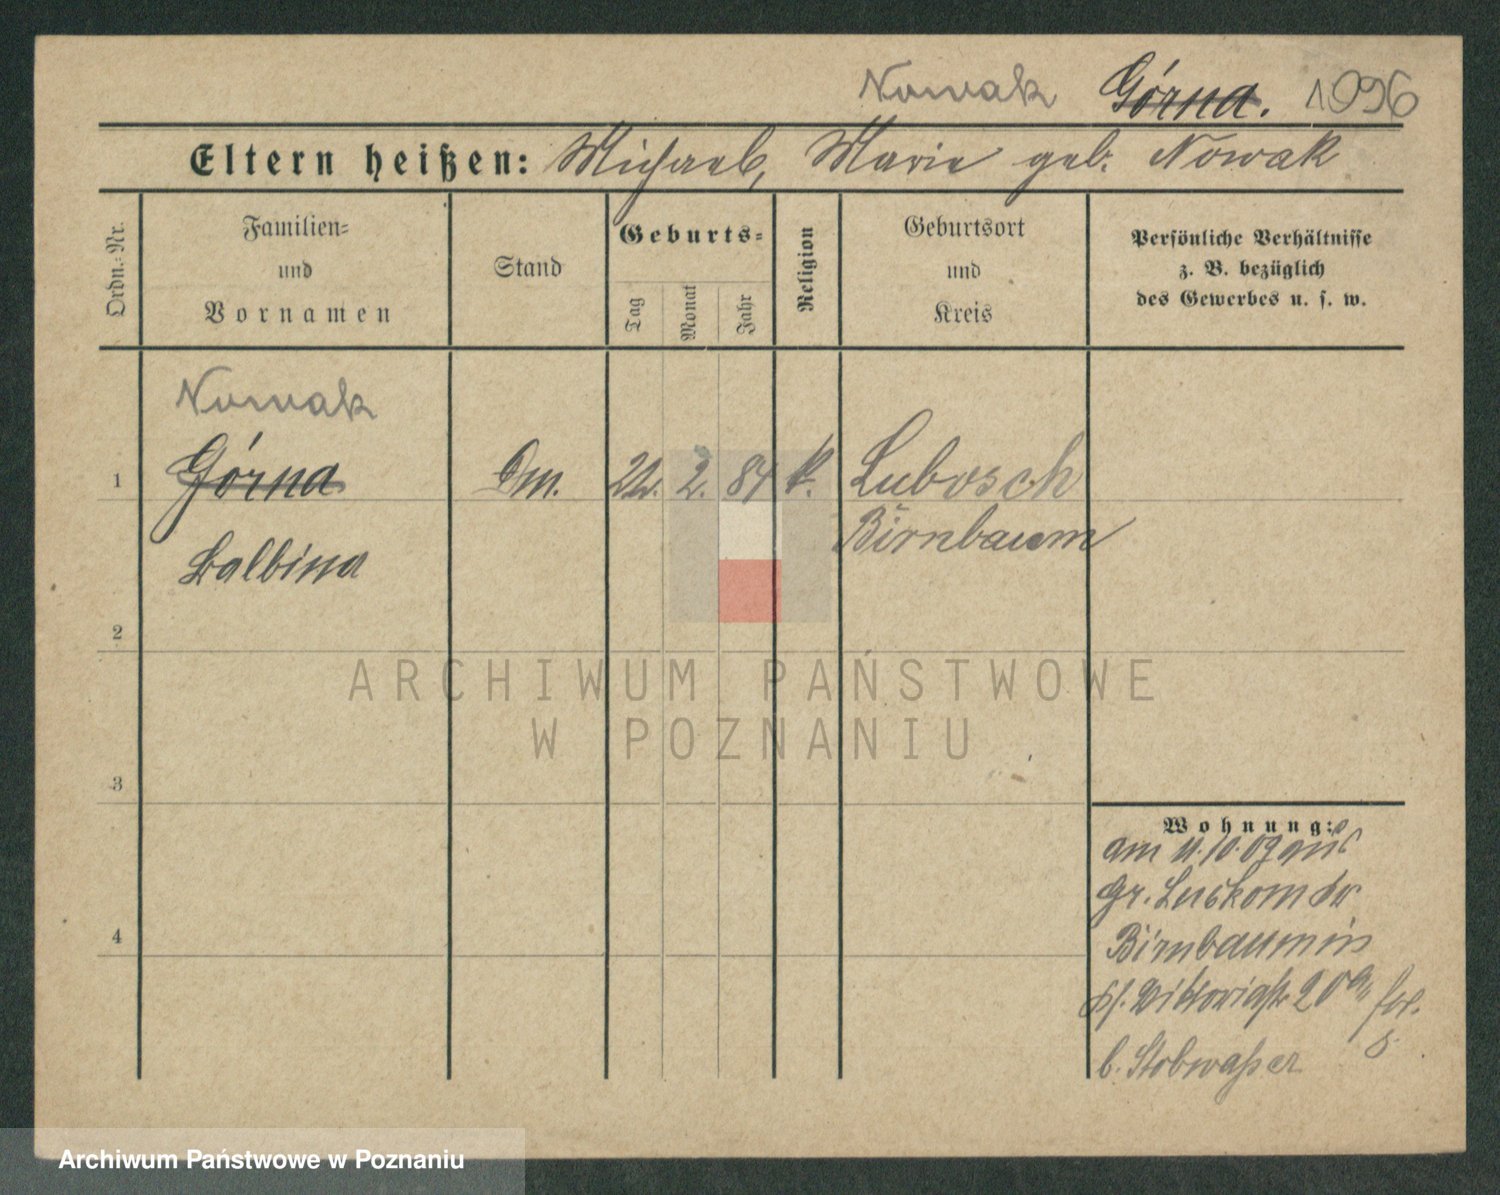 Nowak Górna. 1096
Eltern heißen: Michael, Marie geb. Nowak
Ordn.-Nr.
Familien-
und
Vornamen
Stand
Geburts-
Tag
Monat
Jahr
Religion
Geburtsort
und
Kreis
Persönliche Verhältnisse
z. B. bezüglich
des Gewerbes u. s. w.
Nowak
1 Górna Dm. 22. 2. 84 k. Lubosch
Birnbaum
Balbina
2
3
4
Wohnung:
am 11.10.09 aus
Gr. Luskom
Birnbaum in
Viktoriastr. 20a
b. Stobwasser
ARCHIWUM PAŃSTWOWE
W POZNANIU
Archiwum Państwowe w Poznaniu